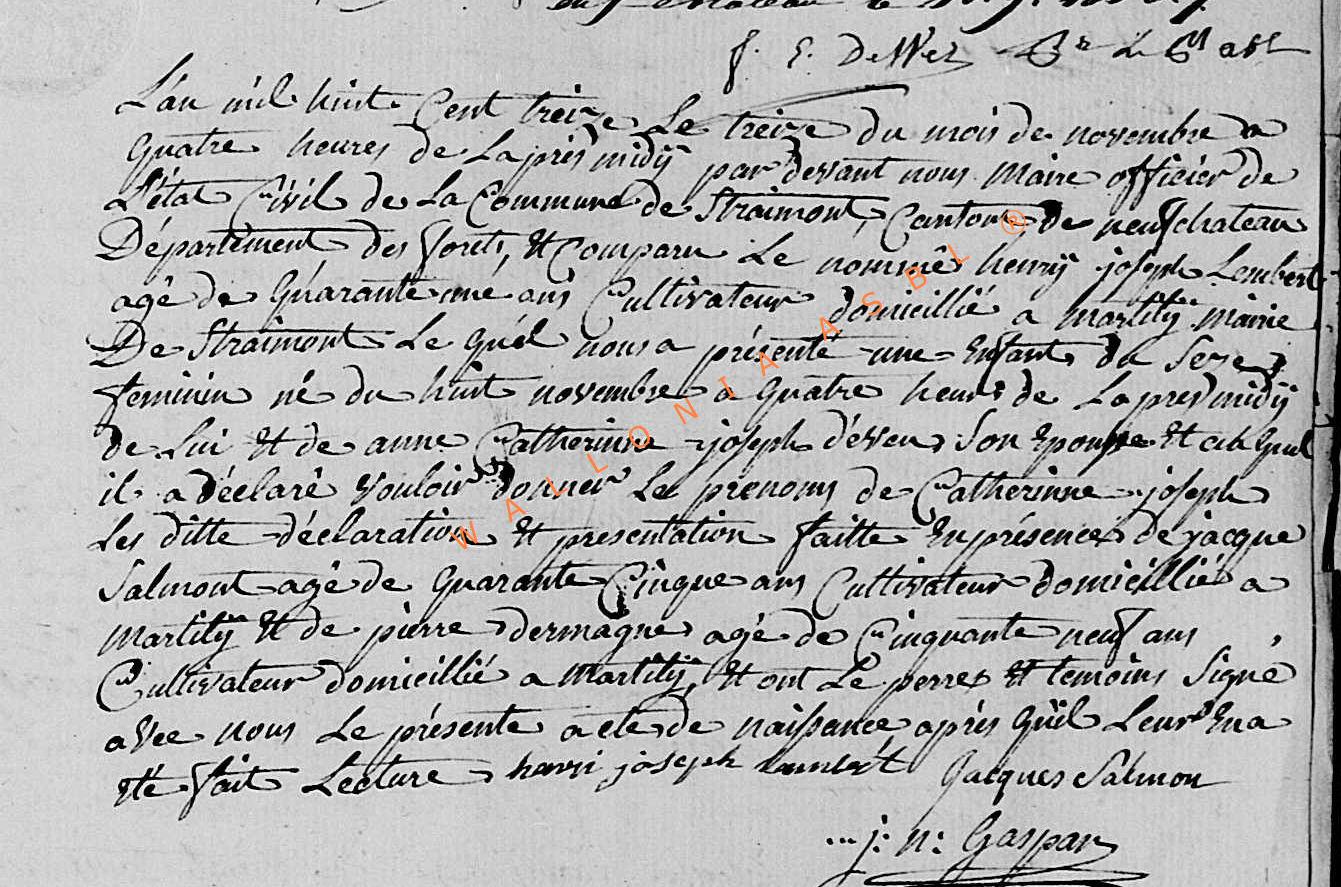 f. E. DeWez
L'an mil huit Cent treize Le treize du mois de novembre a
quatre heures de Laprés midÿ par devant nous Maire officiér de
L'état Civil de La Commune de Straimont, Canton de neufchateau
Département des forêts, Et Comparu Le nommé henrÿ joseph Lembert
agé de Quarante une ans Cultivateur domicillié a Martilÿ mairie
De Straimont Le quél nous a présenté une Enfant du Sexe
feminin né du huit novembre a quatre heurs de Lapres midÿ
de Lui Et de anne Catherinne joseph son Epouse Et au quel
il a déclaré vouloir donner Les prenoms de Catherinne joseph
Les ditte déclaration Et presentation faitte En présence de jacque
Salmont agé de quarante Cinque ans Cultivateur domicillié a
Martilÿ Et de pierre dermagne agé de Cinquante neuf ans
Cultivateur domicillié a Martilÿ, Et ont Le perre Et temoins Signé
avec nous Le présente acte de naissance aprés qüil Leur En a
Eté fait Lecture henri joseph lambert Jacques Salmon
j: n: Gaspar
WALLONIA ASBL ®